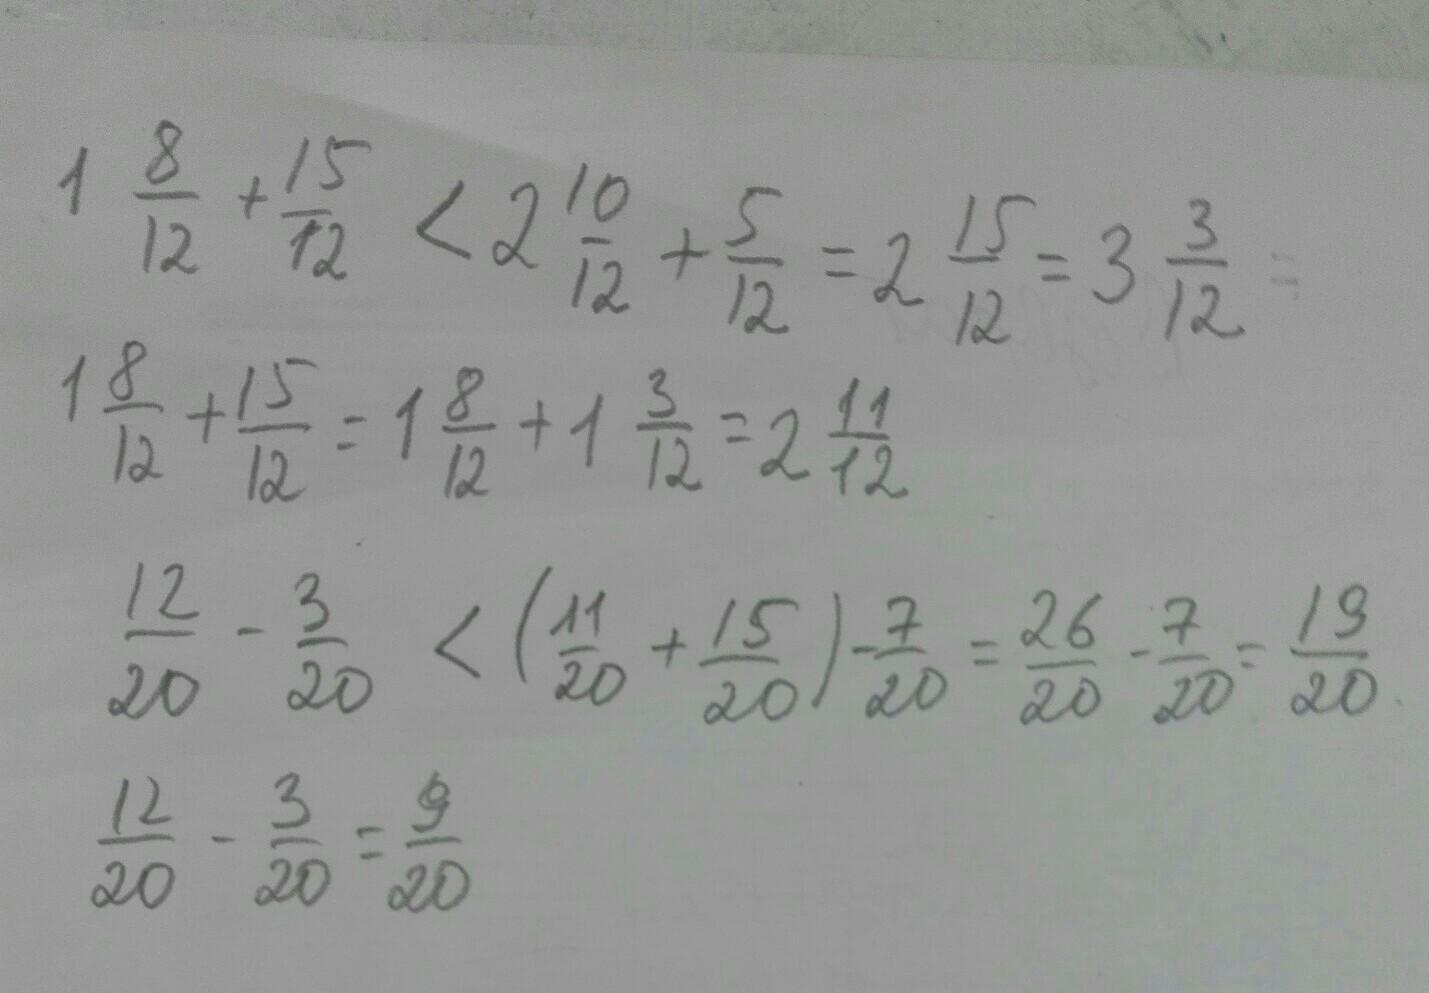 1 8/12 + 15/12 < 2 10/12 + 5/12 = 2 15/12 = 3 3/12 =
1 8/12 + 15/12 = 1 8/12 + 1 3/12 = 2 11/12
12/20 - 3/20 < (11/20 + 15/20) - 7/20 = 26/20 - 7/20 = 19/20
12/20 - 3/20 = 9/20